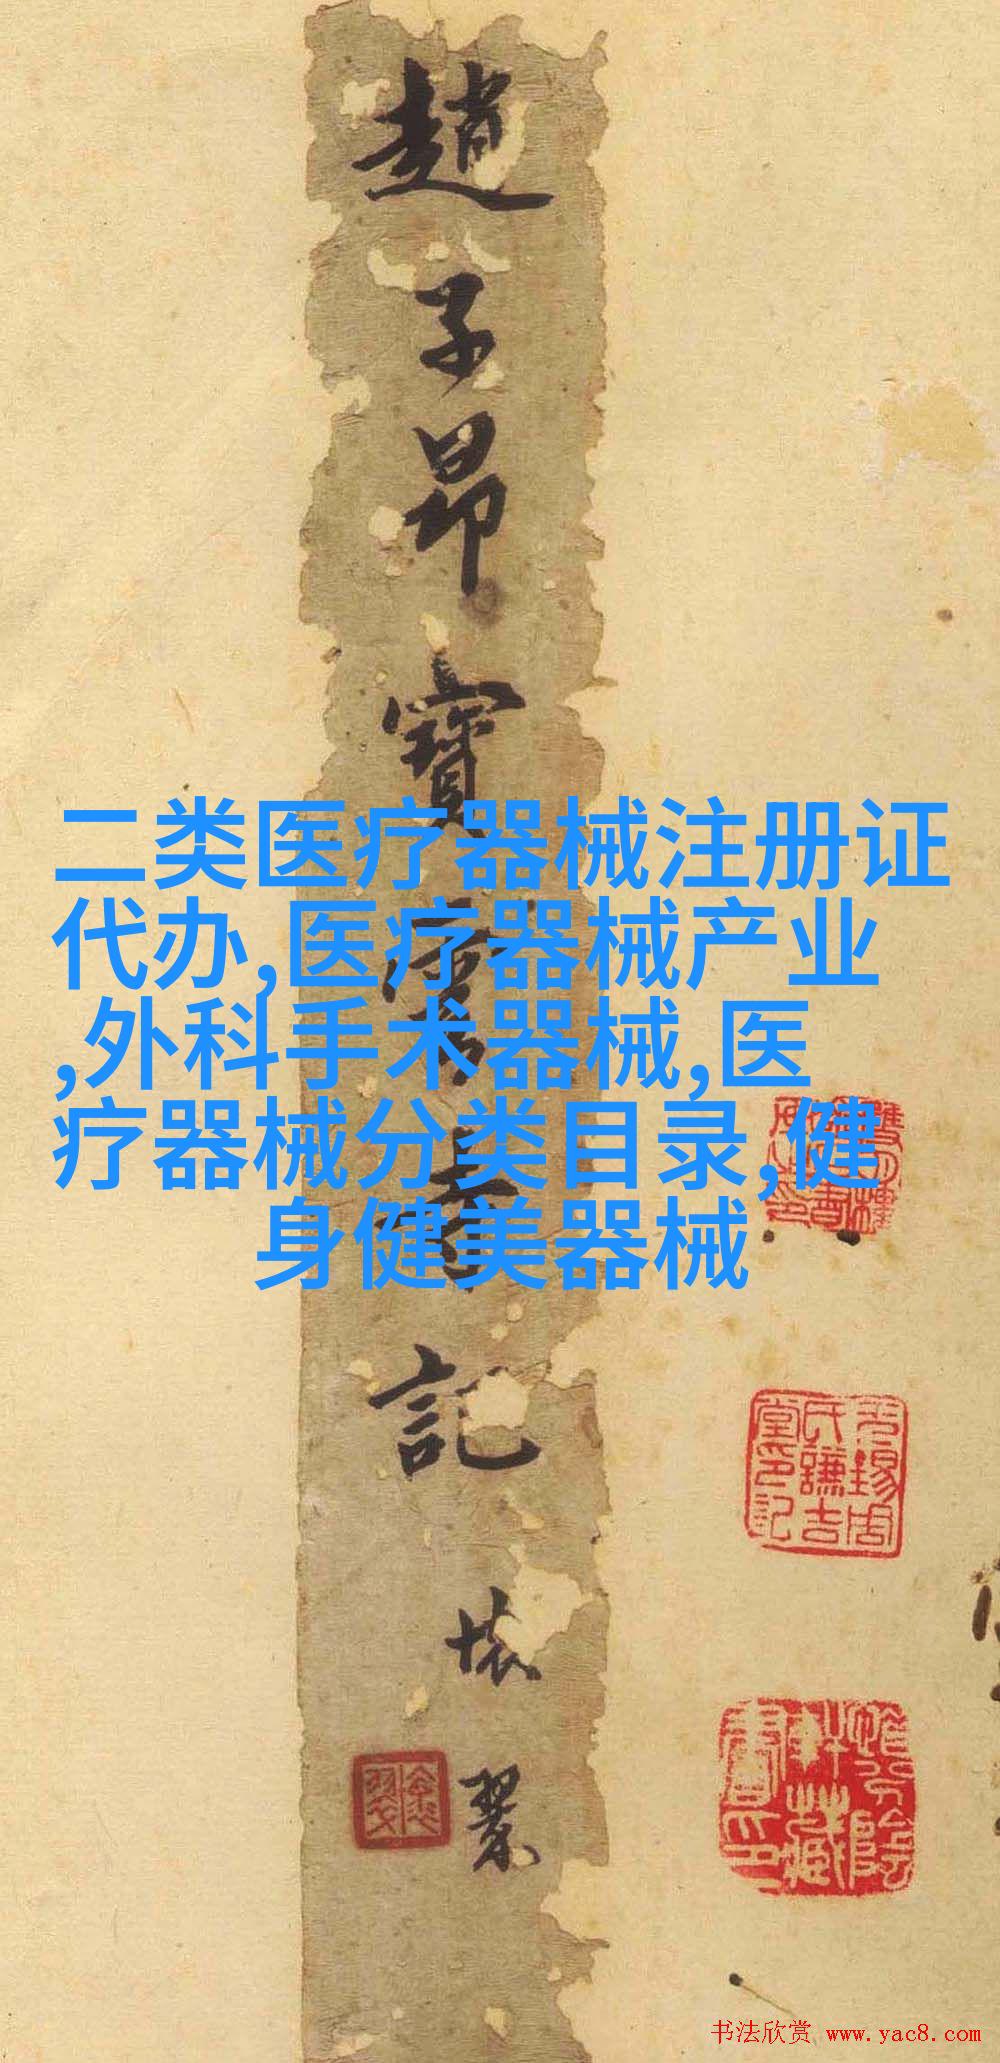 趙子昂寶雲寺記
懷翠
二类医疗器械注册证
代办,医疗器械产业
,外科手术器械,医
疗器械分类目录,健
身健美器械
氏謙吉
堂印記
书法欣赏 www.yac8.com